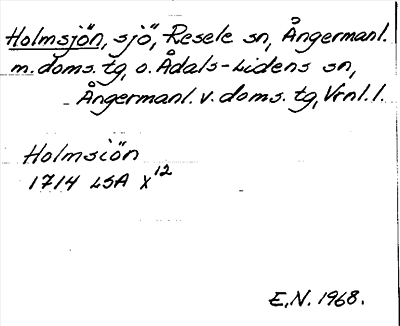 Holmsjön, sjö, Resele sn, Ångermanl.
m. doms. tg, o. Ådals-Lidens sn,
Ångermanl. v. doms. tg, Vrnl. l.
Holmsiön
1714 LSA X¹²
E.N. 1968.